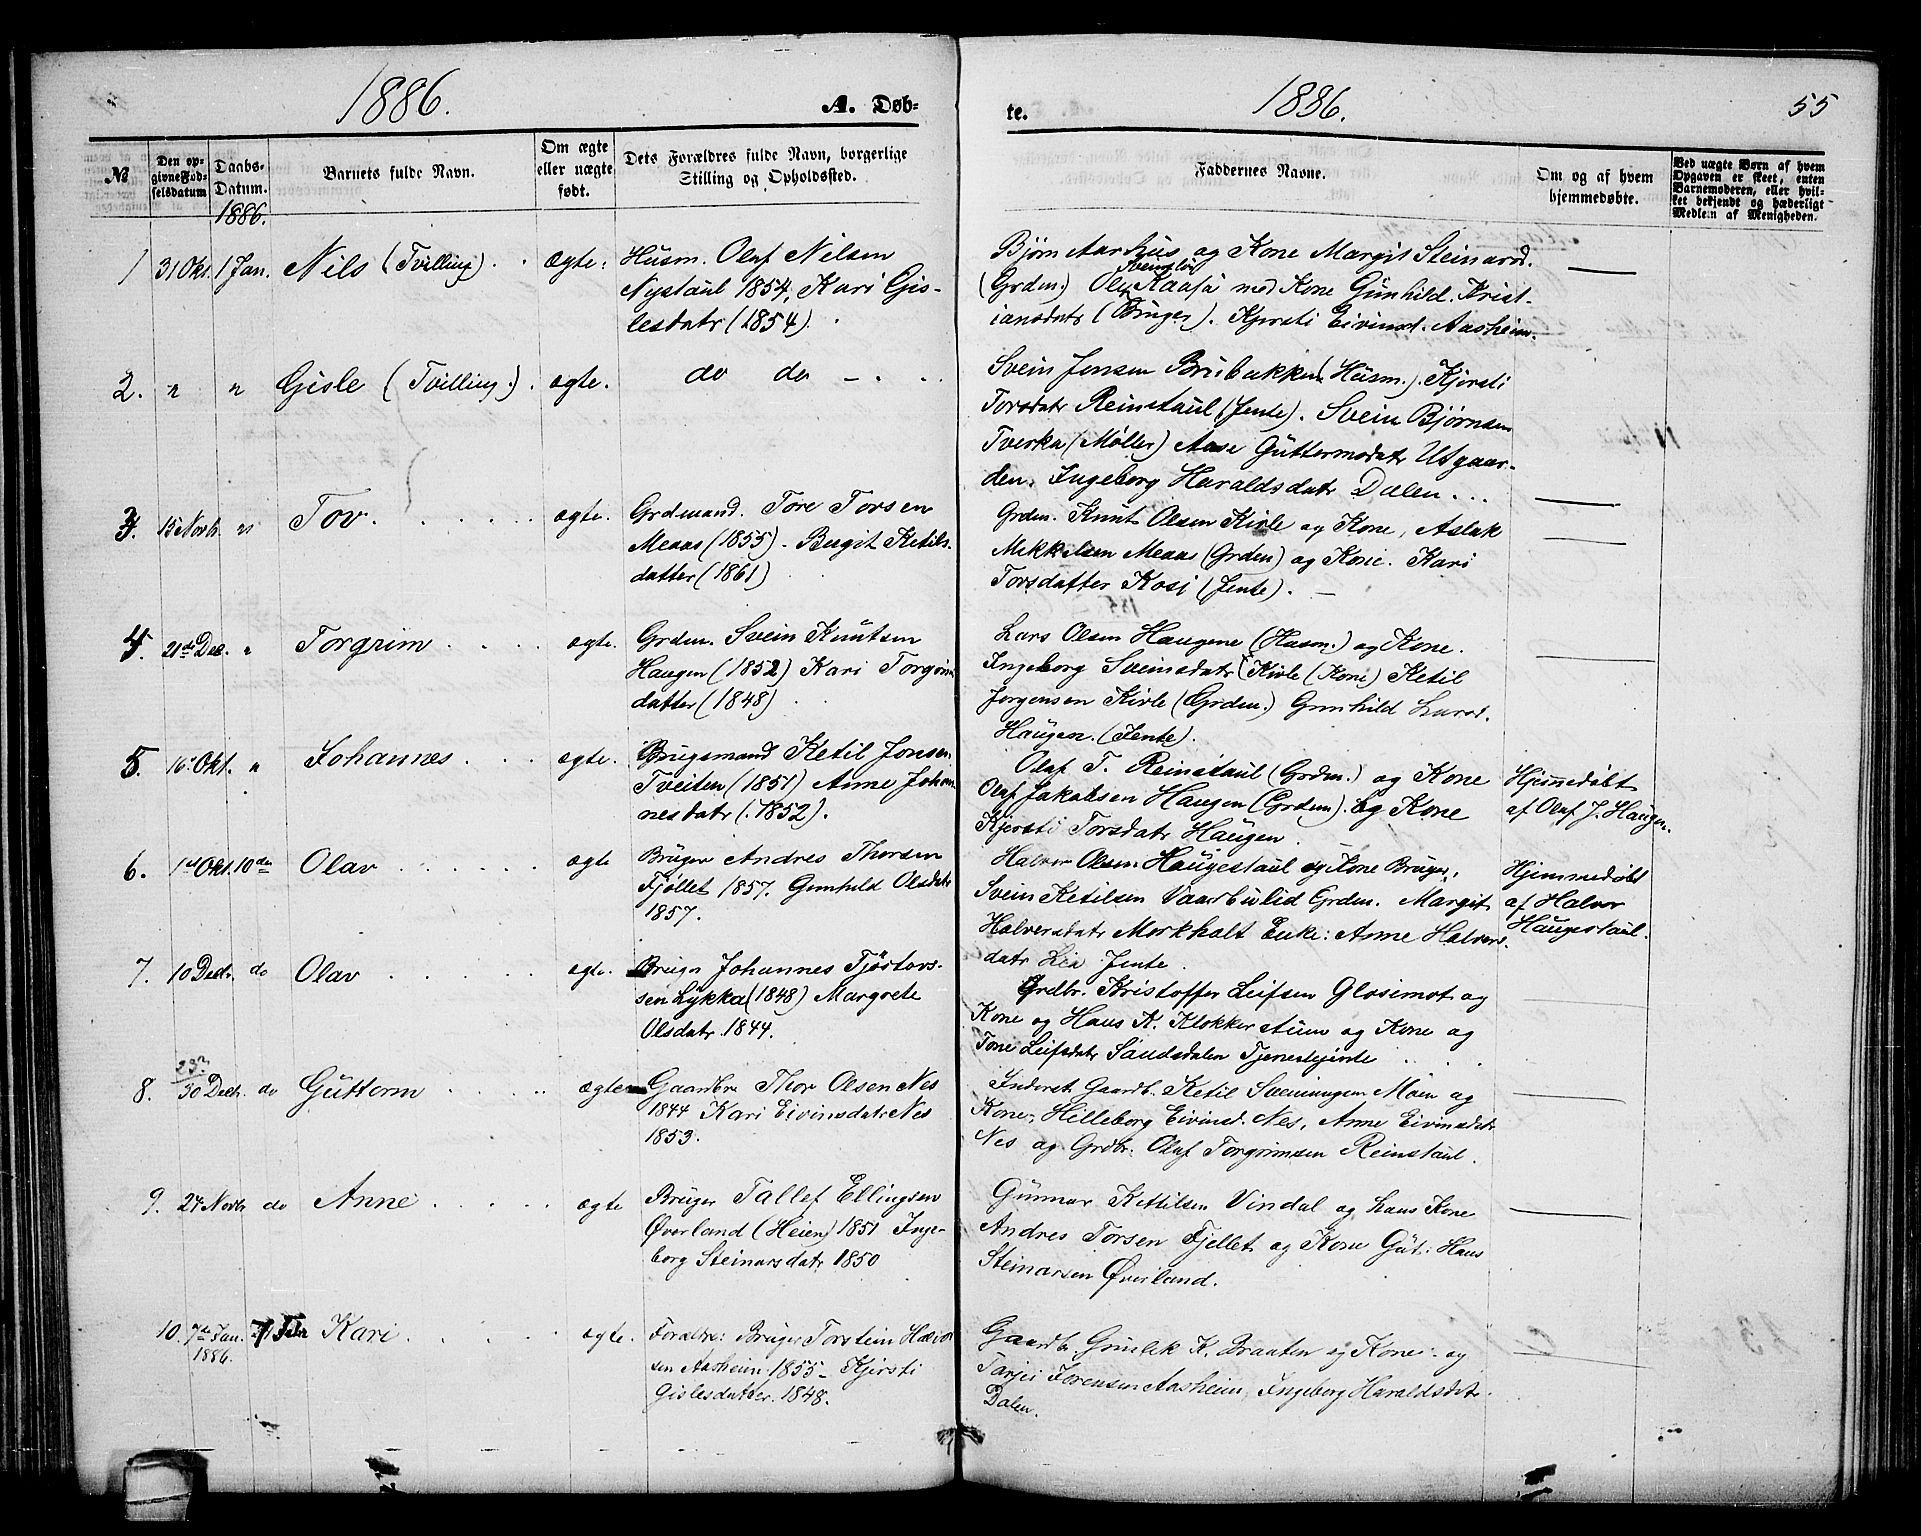 1886.
A. Døb-
№
Den op-
givne Fød-
selsdatum
Daabs-
Datum.
1886.
Barnets fulde Navn.
Om ægte
eller uægte
født.
Dets Forældres fulde Navn, borgerlige
Stilling og Opholdssted.
1 31 Okt. 1 Jan. Nils (Tvilling) . . ægte.
Husm. Olaf Nilsen
Nystaul 1854, Kari Gis-
lesdatr (1854).
2. " " Gisle (Tvilling.) . ægte.
do do
3. 15 Novb. " Tov. ægte.
Grdmand. Tore Torsen
Meaas (1855). Bergit Ketils-
datter (1861)
4. 21de Dec. " Torgrim ægte.
Grden. Svein Knutsen
Haugen (1852) Kari Torgrims
datter (1848)
5. 16 Okt. " Johannes ægte.
Brugsmand Ketil Jonsen
Tveiten (1851) Anne Johan-
nesdatr (1852).
6. 1 Okt. 10de Olav ægte
Bruger Andres Thorsen
Fjøllet 1857. Gunhild Olsdatr
1857.
7. 10 Decb. do Olav ægte.
Bruger Johannes Tjøstovs-
sen Lykka (1848) Margrete
Olsdatr. 1844.
23.
8. 30 Decb. do Guttorm ægte
Gaardbr. Thor Olsen Nes
1844 Kari Eivinsdatr Nes
1853.
9. 24 Novb. do Anne ægte
Bruger Tallef Ellingsen
Øverland (Heien) 1851 Inge-
borg Steinarsdatr 1850
10. 7de Jan. 7 Febr Kari. ægte.
1886.
Forældre: Bruger Torstein Halvor
sen Aasheim 1855 - Kjersti
Gislesdatter. 1848.
te.
1886.
55
Faddernes Navne.
Om og af hvem
hjemmedøbte.
Ved uægte Børn af hvem
Opgaven er skeet, enten
Barnemoderen, eller hvil-
ket bekjendt og hæderligt
Medlem af Menigheden.
Bjørn Aarhus og Kone Margit Steinarsd.
(Grden.) Ole Kaasa med Kone Gunhild Krist-
iansdatr (Bruger). Kjersti Eivinsd. Aasheim.
Svein Jensen Brubakken (Husm.). Kjersti
Torsdatr Reinstaul (Jente). Svein Bjørnsen
Tverka (Møller) Aase Guttormsdatr Utgaar-
den. Ingeborg Haraldsdatr Dalen...
Grden. Knut Olsen Kirle og Kone, Aslak
Mikkelsen Meaas (Grden) og Kone. Kari
Torsdatter Kosi (Jente).
Lars Olsen Haugene (Husm.) og Kone.
Ingeborg Sveinsdatr Kirle (Kone) Ketil
Jørgensen Kirle (Grden.) Gunhild Larsd.
Haugen. (Jente).
Olaf T. Reinstaul (Grden.) og Kone
Olaf Jakobsen Haugen (Grden). og Kone
Kjersti Torsdatr Haugen.
Hjemmedøbt
af Olaf J. Haugen.
Halvor Olsen Haugestaul og Kone Bruger,
Svein Ketilsen Vaarbulid Grden. Margit
Halversdatr Morkhalt Enke: Anne Halvers
datr Lia Jente.
Hjemmedøbt
af Halvor
Haugestaul.
Grdbr. Kristoffer Leifsen Glosimot og
Kone og Hans K. Klokkerstuen og Kone og
Tone Leifsdatr Saudsdalen Tjenestejente
Inderst Gaardb. Ketil Sveinungsen Moen og
Kone, Hilleborg Eivinsd. Nes, Anne Eivinsdatr
Nes og Grdbr. Olaf Torgrimsen Reinstaul.
Gunnar Kittilsen Vindal og hans Kone
Andres Torsen Fjellet og Kone Gut: Hans
Steinarsen Øverland.
Gaardb. Gunlek K. Braaten og Kone og
Tarjei Jorensen Aasheim, Ingeborg Haraldsdatr
Dalen.